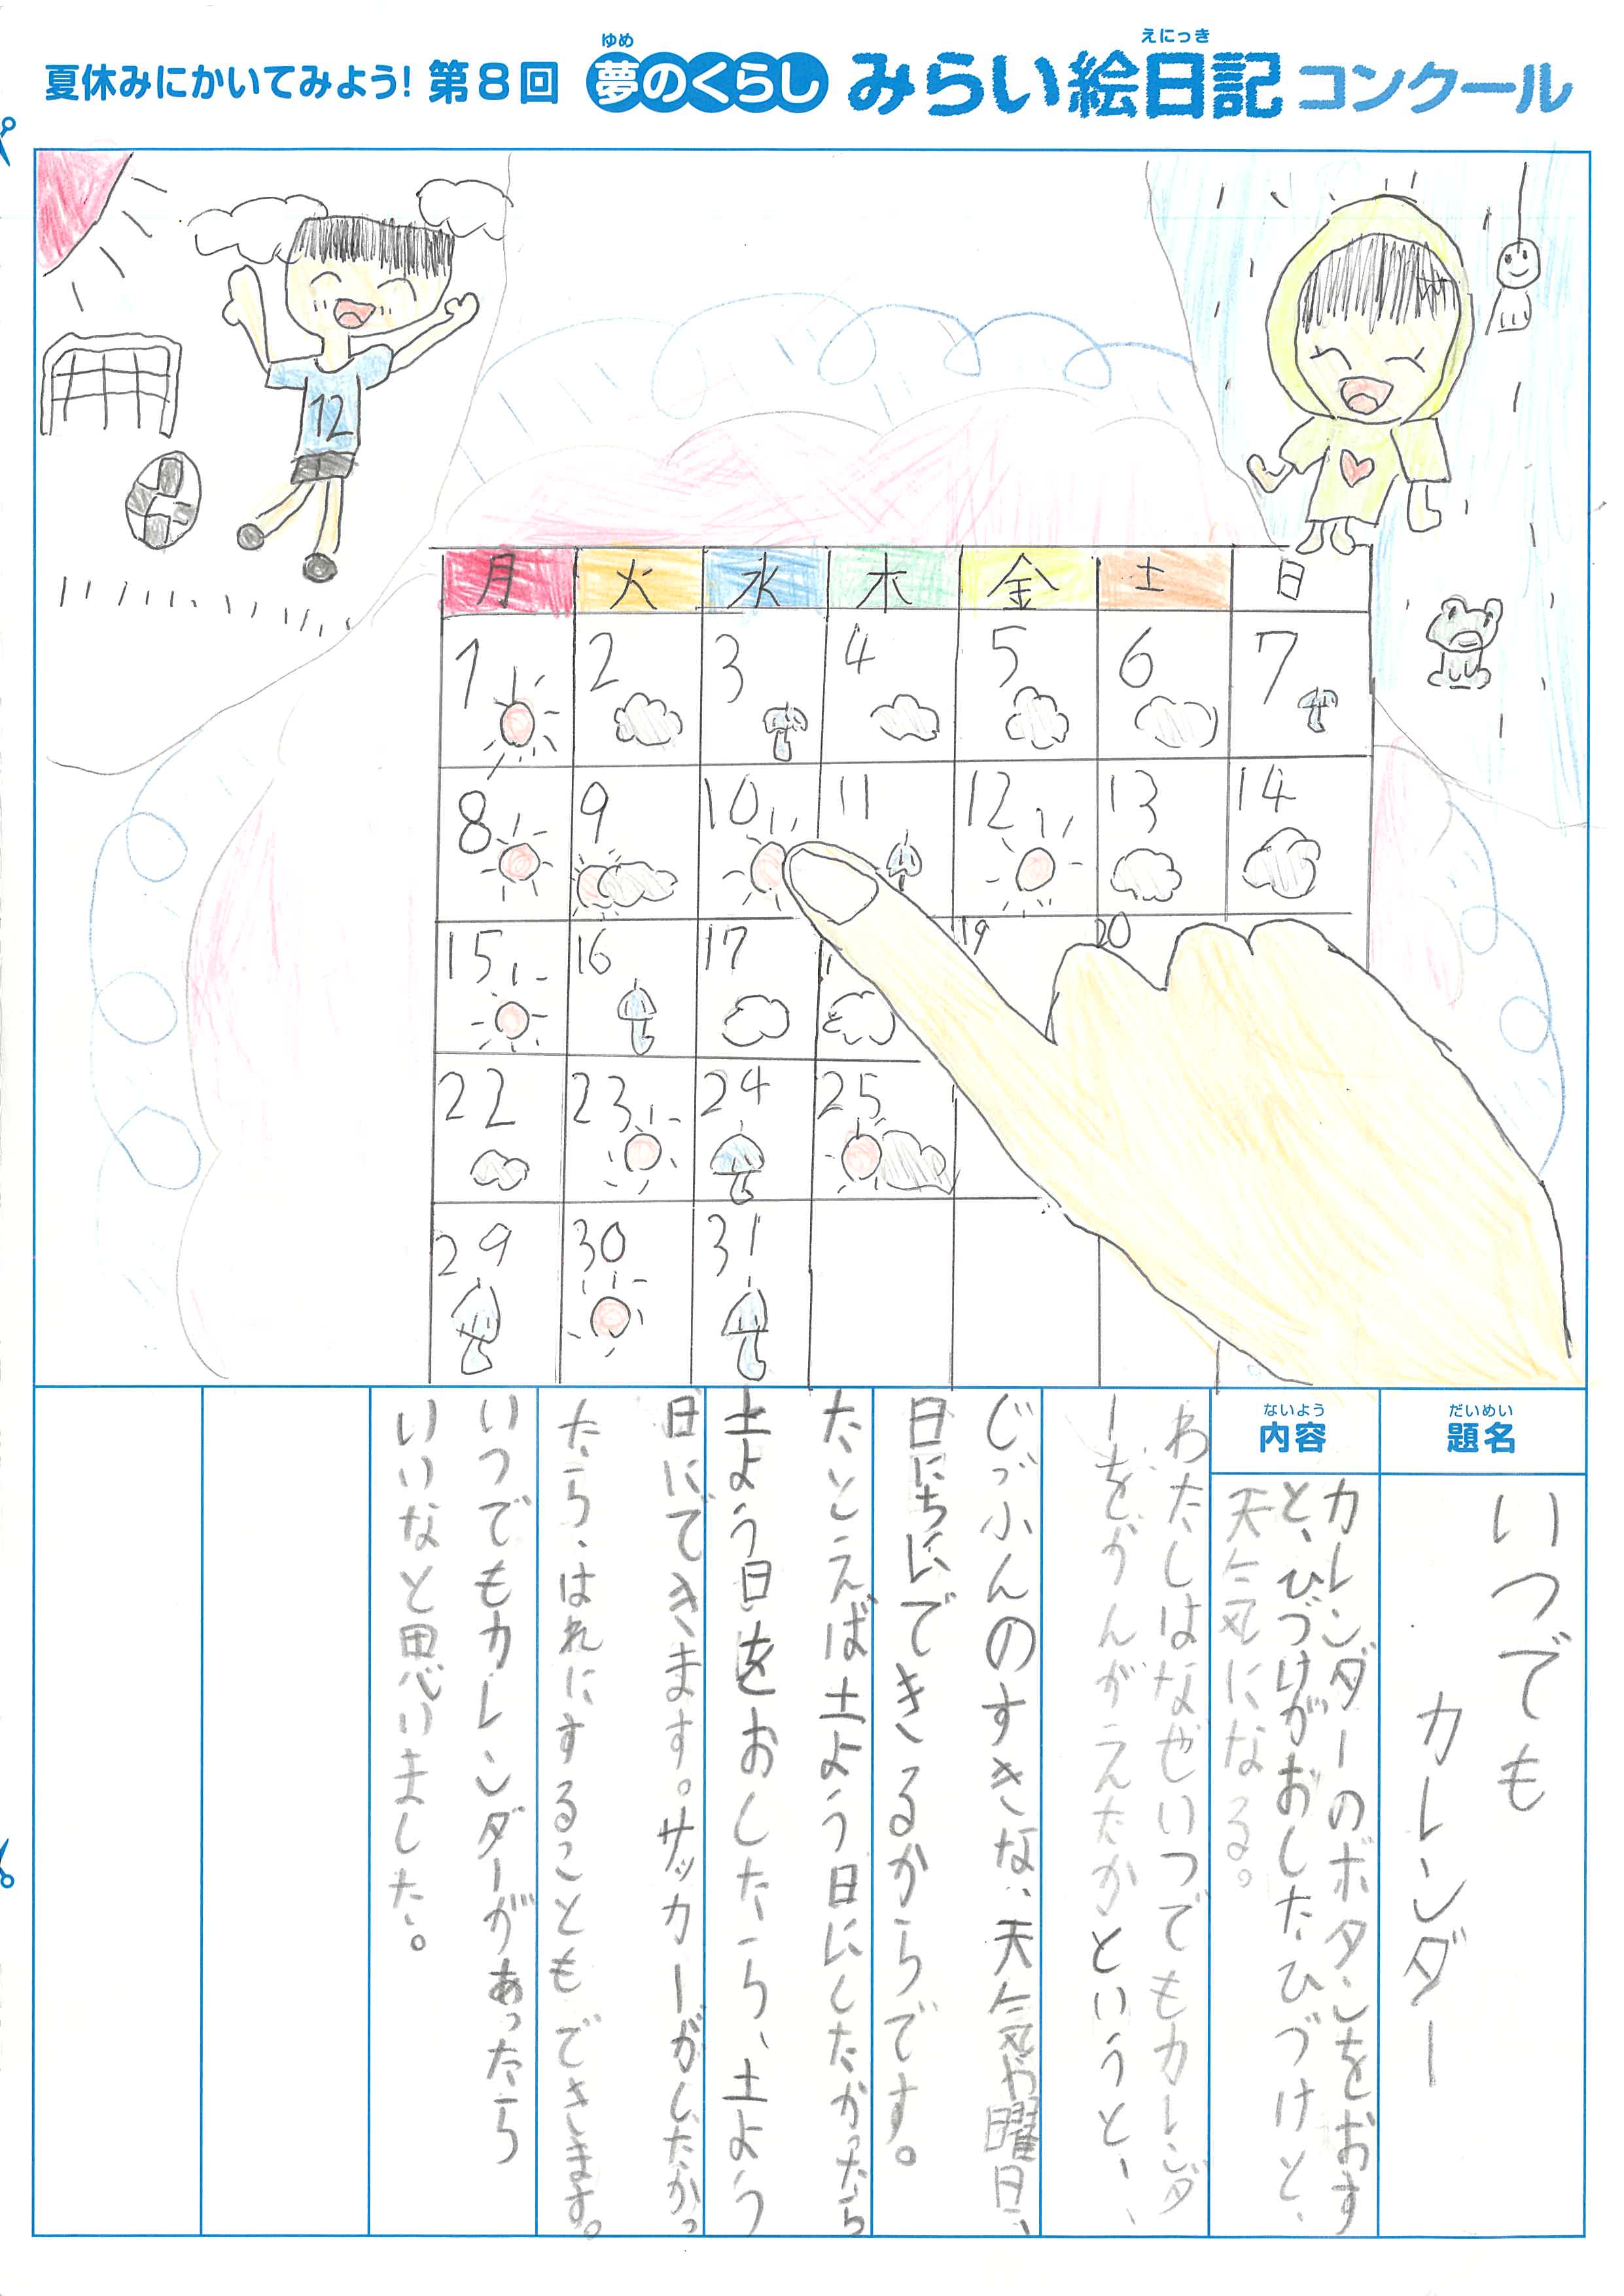 夏休みにかいてみよう! 第8回 夢のくらし みらい絵日記 コンクール
ゆめ
えにっき
12
月 火 水 木 金 土 日
1 2 3 4 5 6 7
8 9 10 11 12 13 14
15 16 17 19 20
22 23 24 25
29 30 31
だいめい
題名
いつでも
カレンダー
ないよう
内容
カレンダーのボタンをおす
と、ひづけがおしたひづけと、
天気になる。
わたしはなぜいつでもカレンダ
ーをかんがえたかというと、
じぶんのすきな、天気や曜日、
日にちにできるからです。
たとえば土よう日にしたかったら
土よう日をおしたら、土よう
日にできます。サッカーがしたかっ
たら、はれにすることもできます。
いつでもカレンダーがあったら
いいなと思いました。